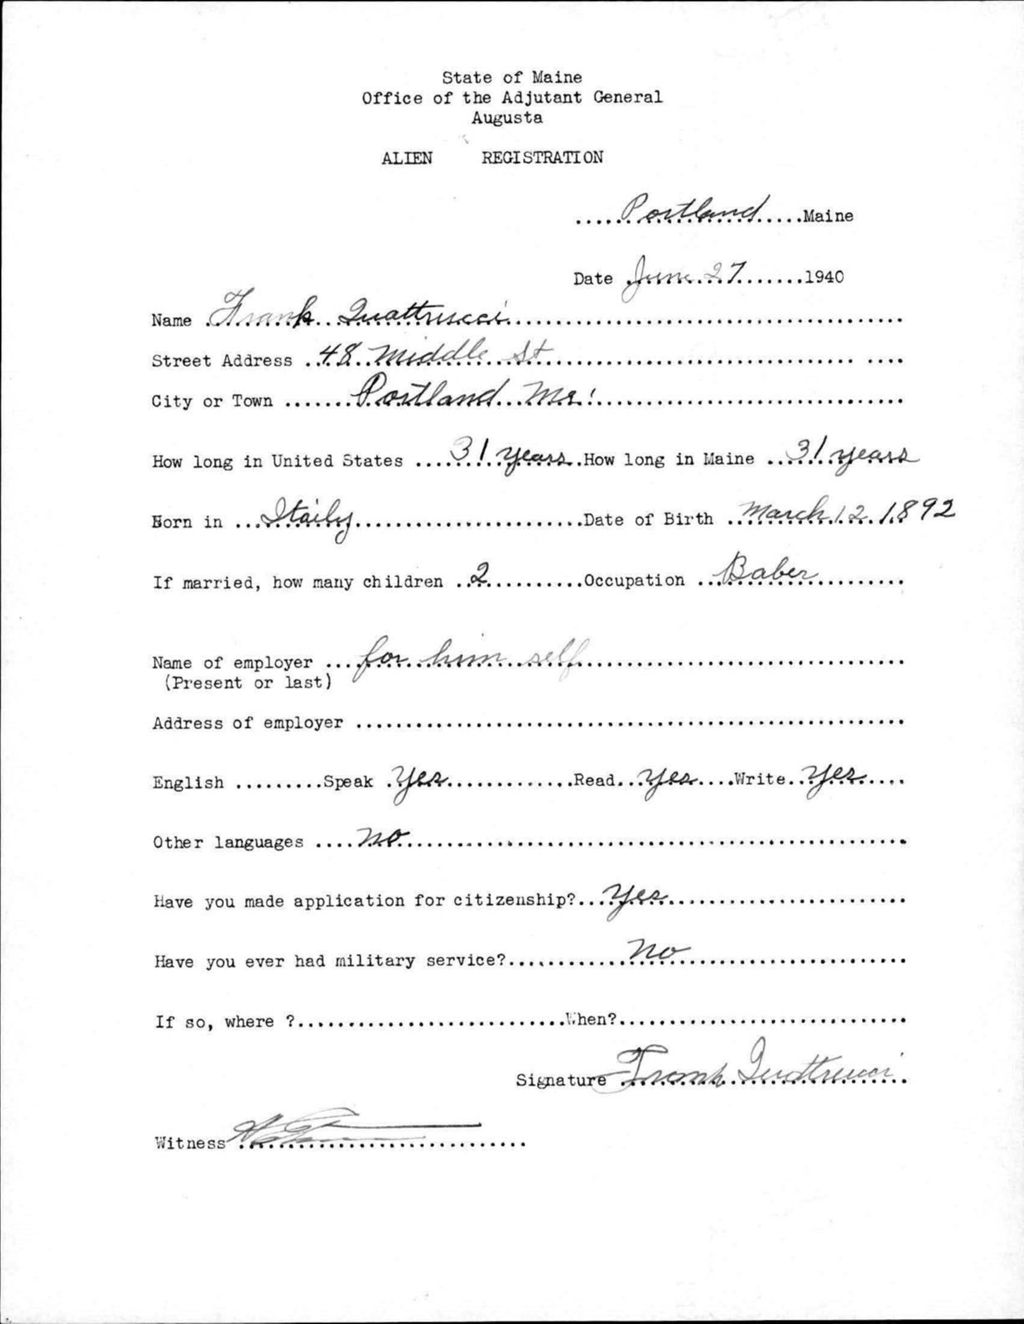 State of Maine
Office of the Adjutant General
Augusta
ALIEN REGISTRATION
.....Portland.....Maine
Date June 27.......1940
Name Frank Quattrucci
Street Address 48 Middle St
City or Town Portland Me.
How long in United States 31 years How long in Maine 31 years
Born in Itaily Date of Birth March 12 1892
If married, how many children 2 Occupation Baber
Name of employer for him self
(Present or last)
Address of employer
English Speak Yes Read Yes Write Yes
Other languages no
Have you made application for citizenship? Yes
Have you ever had military service? no
If so, where ? When?
Signature Frank Quattrucci
Witness